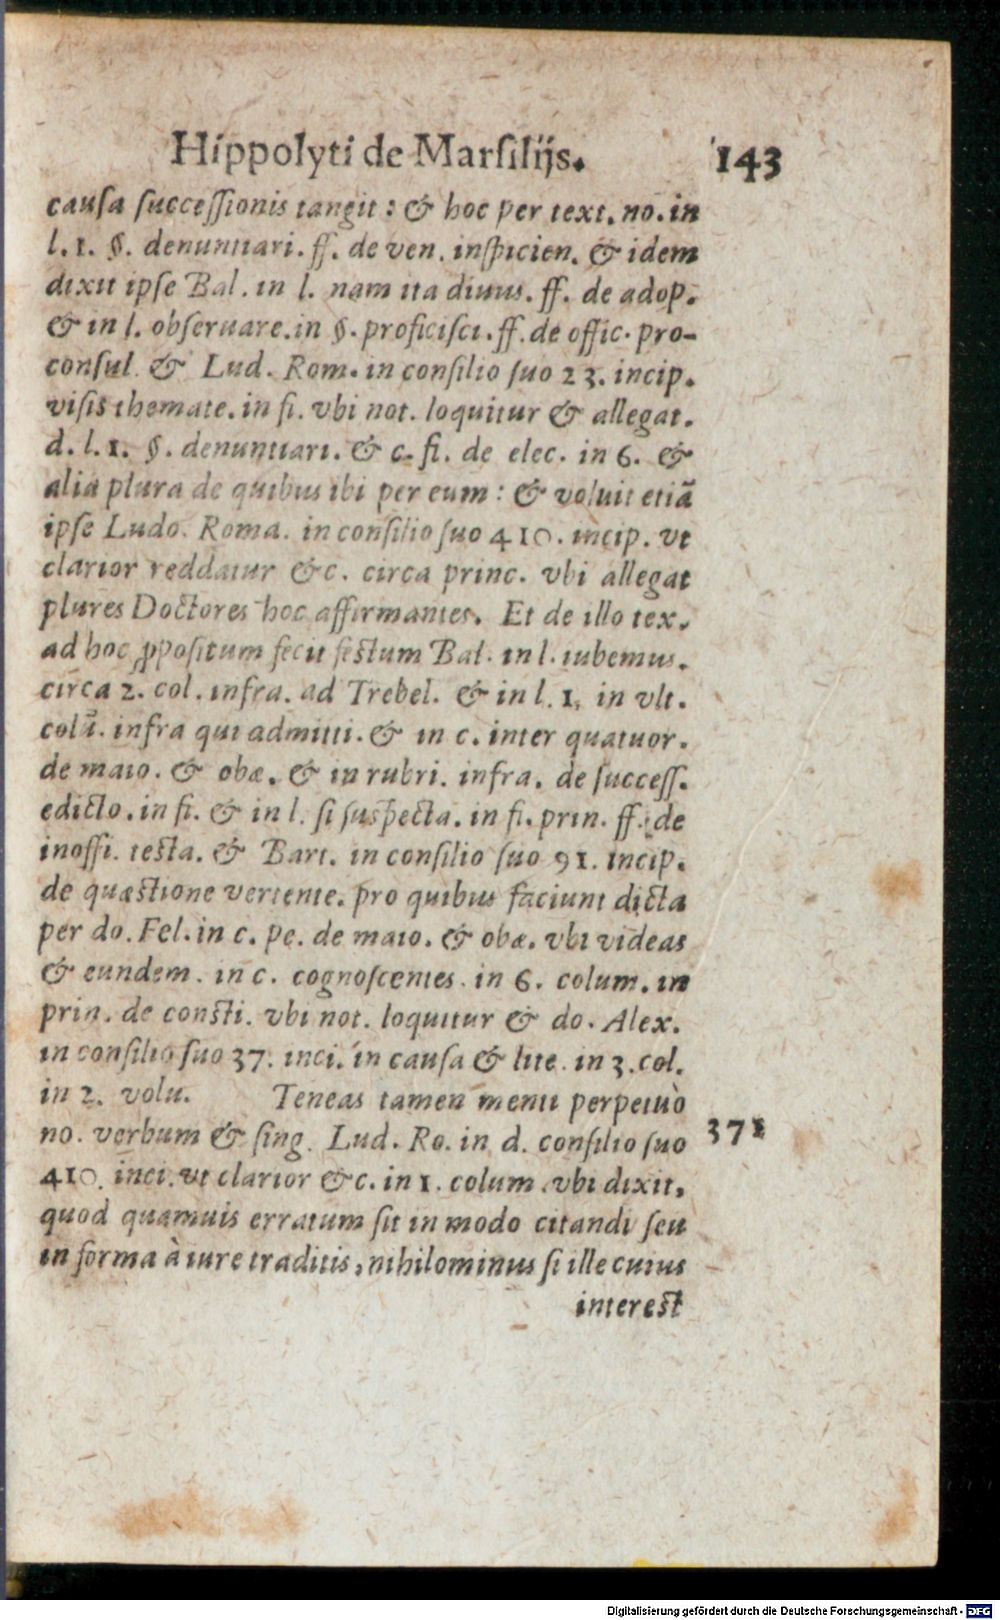 Hippolyti de Marſilijs. 143
cauſa ſucceſſionis tangit : & hoc per text. no. in
l. 1. §. denuntiari. ff. de ven. inſpicien. & idem
dixit ipſe Bal. in l. nam ita diuus. ff. de adop.
& in l. obſeruare. in §. proficiſci. ff. de offic. pro-
conſul. & Lud. Rom. in conſilio ſuo 23. incip.
viſis themate. in fi. vbi not. loquitur & allegat.
d. l. 1. §. denuntiari. & c. fi. de elec. in 6. &
alia plura de quibus ibi per eum : & voluit etiā
ipſe Ludo. Roma. in conſilio ſuo 410. incip. vt
clarior reddatur &c. circa princ. vbi allegat
plures Doctores hoc affirmantes. Et de illo tex.
ad hoc ꝓpoſitum fecit feſtum Bal. in l. iubemus.
circa 2. col. infra. ad Trebel. & in l. 1. in vlt.
colū. infra qui admitti. & in c. inter quatuor.
de maio. & obæ. & in rubri. infra. de ſucceſſ.
edicto. in fi. & in l. ſi ſuſpecta. in fi. prin. ff. de
inoffi. teſta. & Bart. in conſilio ſuo 91. incip.
de quæſtione vertente. pro quibus faciunt dicta
per do. Fel. in c. pe. de maio. & obæ. vbi videas
& eundem. in c. cognoſcentes. in 6. colum. in
prin. de conſti. vbi not. loquitur & do. Alex.
in conſilio ſuo 37. inci. in cauſa & lite. in 3. col.
in 2. volu. Teneas tamen menti perpetuò
no. verbum & ſing. Lud. Ro. in d. conſilio ſuo 371
410. inci. vt clarior &c. in 1. colum. vbi dixit,
quod quamuis erratum ſit in modo citandi ſeu
in forma à iure traditis, nihilominus ſi ille cuius
intereſt
Digitalisierung gefördert durch die Deutsche Forschungsgemeinschaft - DFG